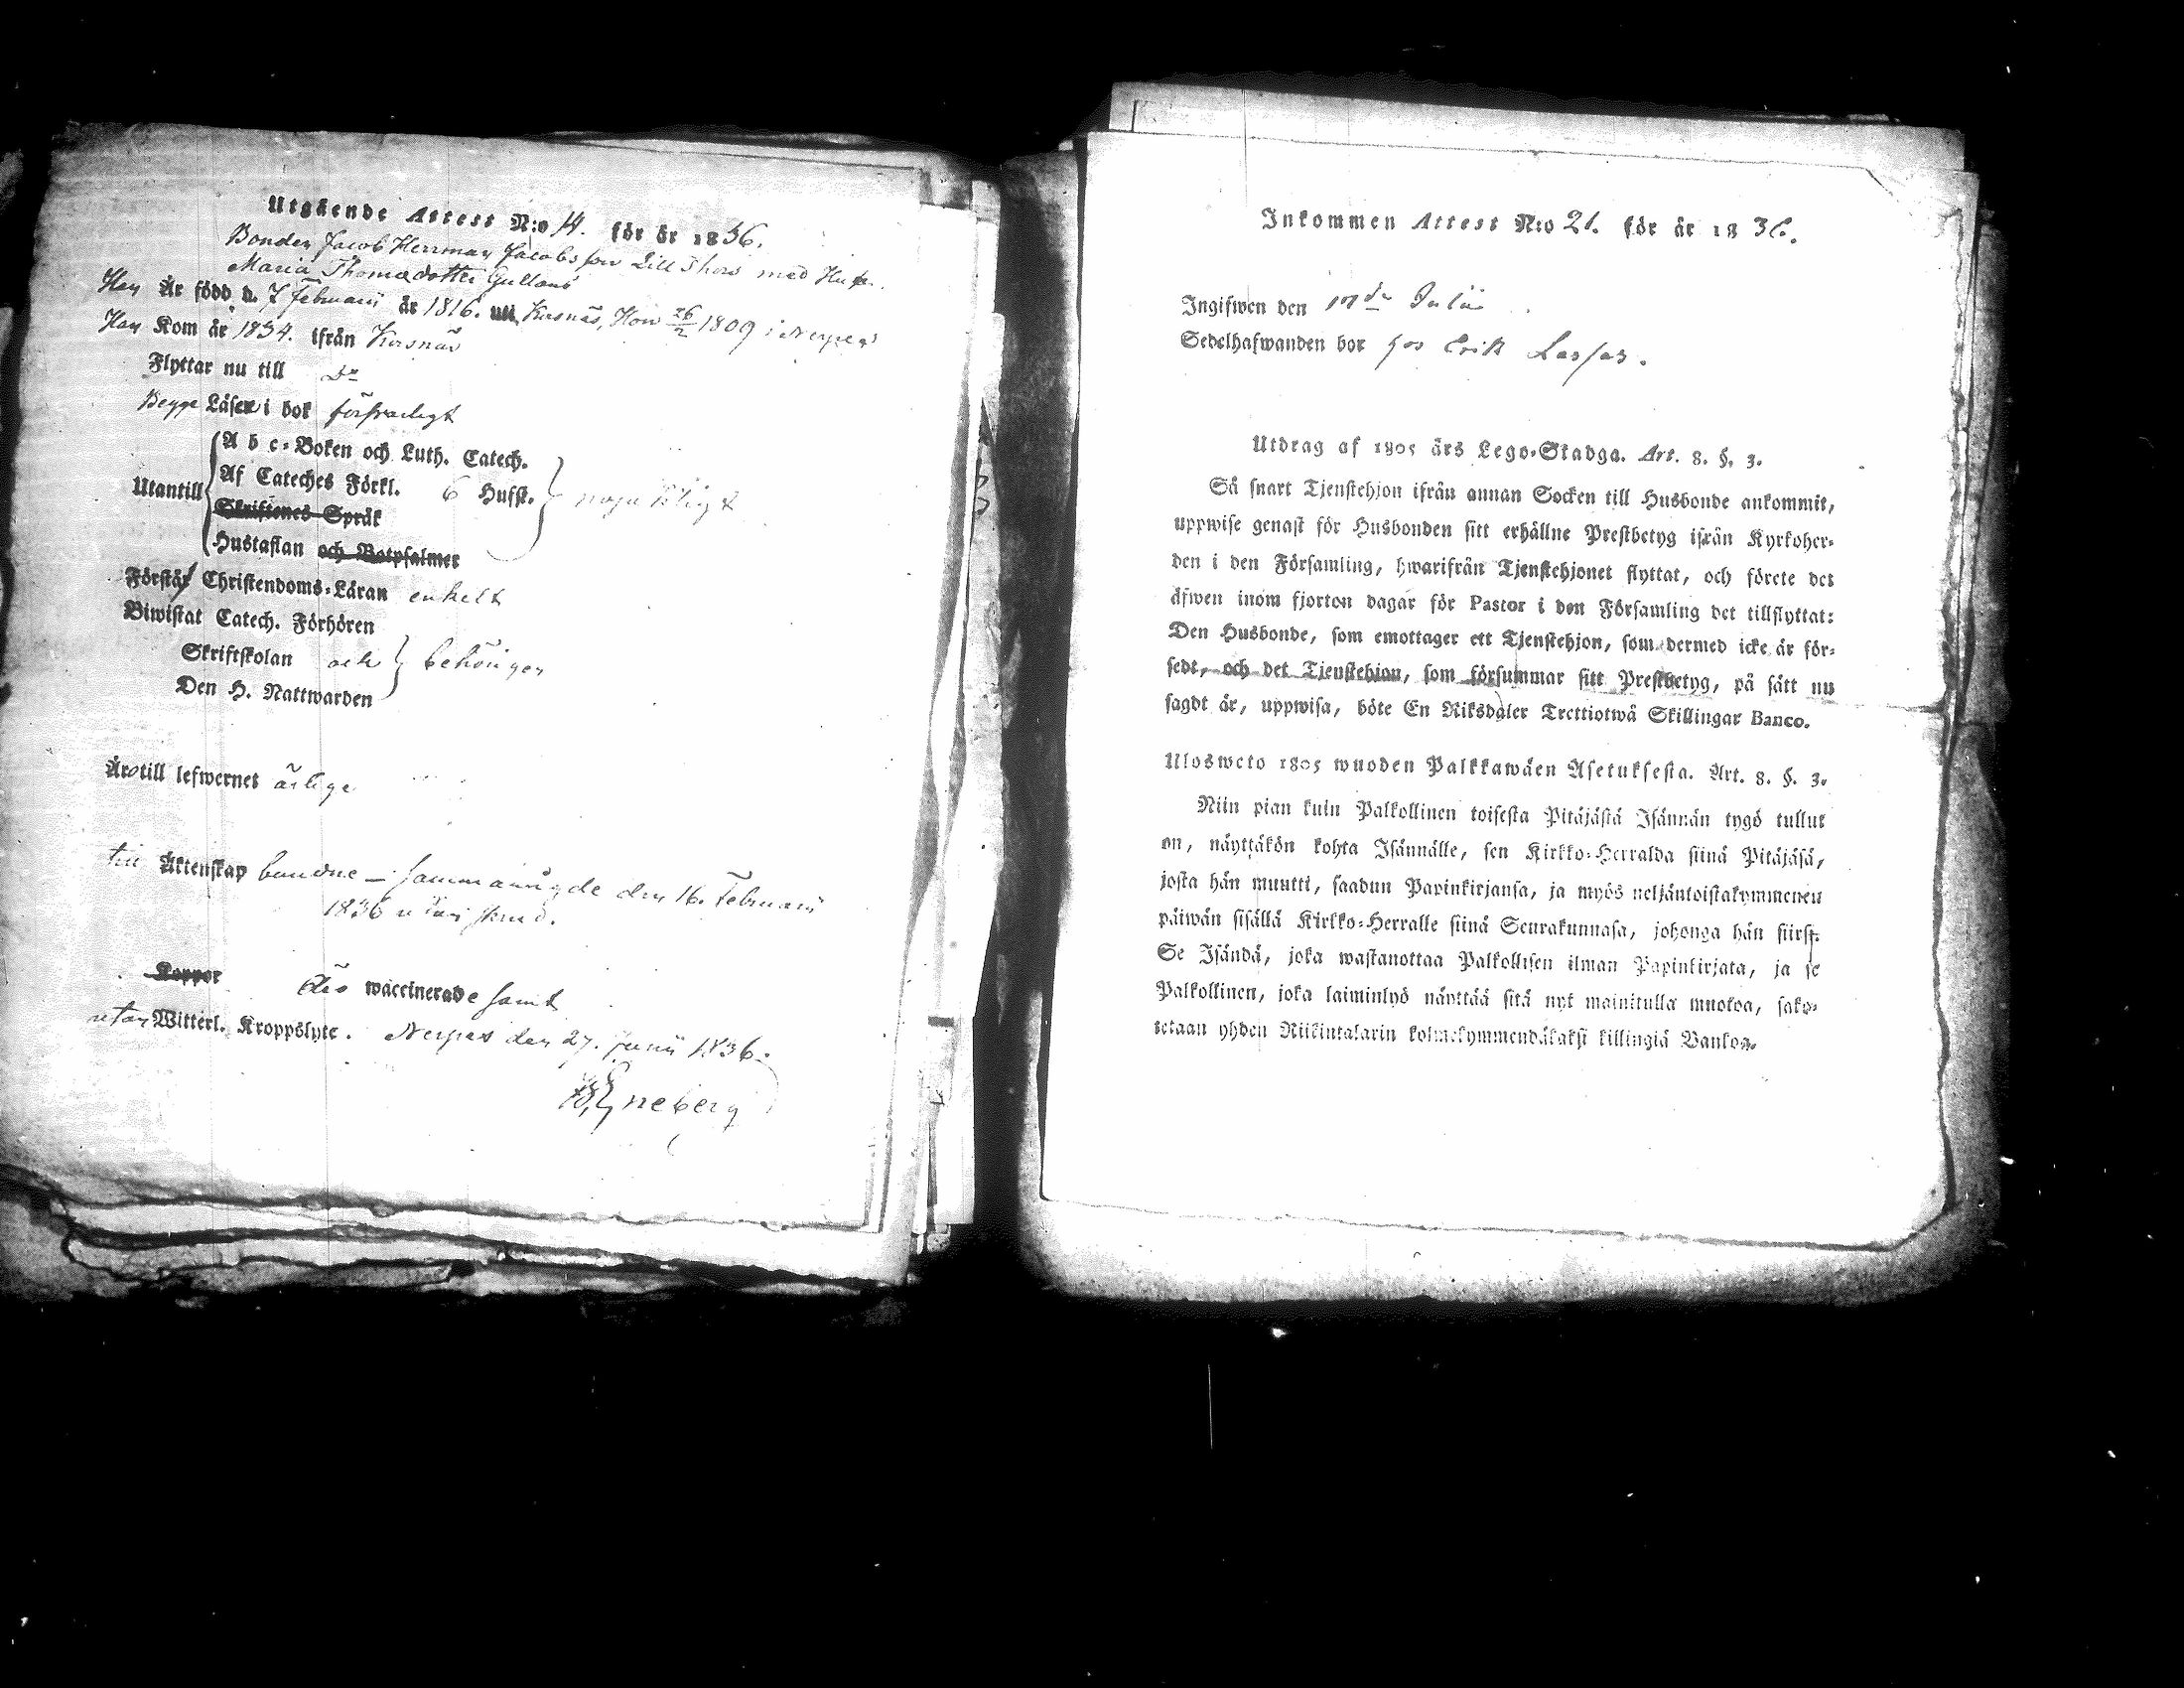 Utgående Attest N:o 14. för år 1836.
Bonden Jacob Herrman Jacobsson Lill Thors med Hust.
Maria Thomædotter Gullans
Han Är född d. 7 Februarii år 1816. uti Korsnäs, Hon 26/2 1809 i Nerpes
Han Kom år 1834. ifrån Korsnäs
Flyttar nu till Do
Begge Läser i bok försvarligt
A b c-Boken och Luth. Catech.
Af Cateches Förkl. 6 Hufst.
Utantill
Skriftenes Språk
Hustaflan och Botpsalmer
nöjaktligt
Förstår Christendoms-Läran enkelt
Biwistat Catech. Förhören
Skriftskolan och behörigen
Den H. Nattwarden
Äro till lefwernet ärlige
till Äktenskap bundne – sammanvigde den 16. Februarii
1836 utan
Koppor äro waccinerade samt
utan Witterl. Kroppslyte. Nerpes den 27. Junii 1836.
Eneberg
Inkommen Attest N:o 21. för år 1836.
Ingifwen den 17de Julii
Sedelhafwanden bor hos Erik Lassas.
Utdrag af 1805 års Lego-Stadga. Art. 8. §. 3.
Så snart Tjenstehjon ifrån annan Socken till Husbonde ankommit,
uppwise genast för Husbonden sitt erhållne Prestbetyg ifrån Kyrkoher-
den i den Församling, hwarifrån Tjenstehjonet flyttat, och förete det
äfwen inom fjorton dagar för Pastor i den Församling det tillflyttat:
Den Husbonde, som emottager ett Tjenstehjon, som dermed icke är för-
sedt, och det Tjenstehjon, som försummar sitt Prestbetyg, på sätt nu
sagdt är, uppwisa, böte En Riksdaler Trettiotwå Skillingar Banco.
Ulosweto 1805 wuoden Palkkawäen Asetuksesta. Art. 8. §. 3.
Niin pian kuin Palkollinen toisesta Pitäjästä Isännän tygö tullut
on, näyttäkön kohta Isännälle, sen Kirkko-Herralda siinä Pitäjäsä,
josta hän muutti, saadun Papinkirjansa, ja myös neljäntoistakymmenen
päiwän sisällä Kirkko-Herralle siinä Seurakunnasa, johonga hän siirsi.
Se Isändä, joka wastanottaa Palkollisen ilman Papinkirjata, ja se
Palkollinen, joka laiminlyö näyttää sitä nyt mainitulla muotoa, sako-
tetaan yhden Riikintalarin kolmekymmendäkaksi killingiä Bankoa.